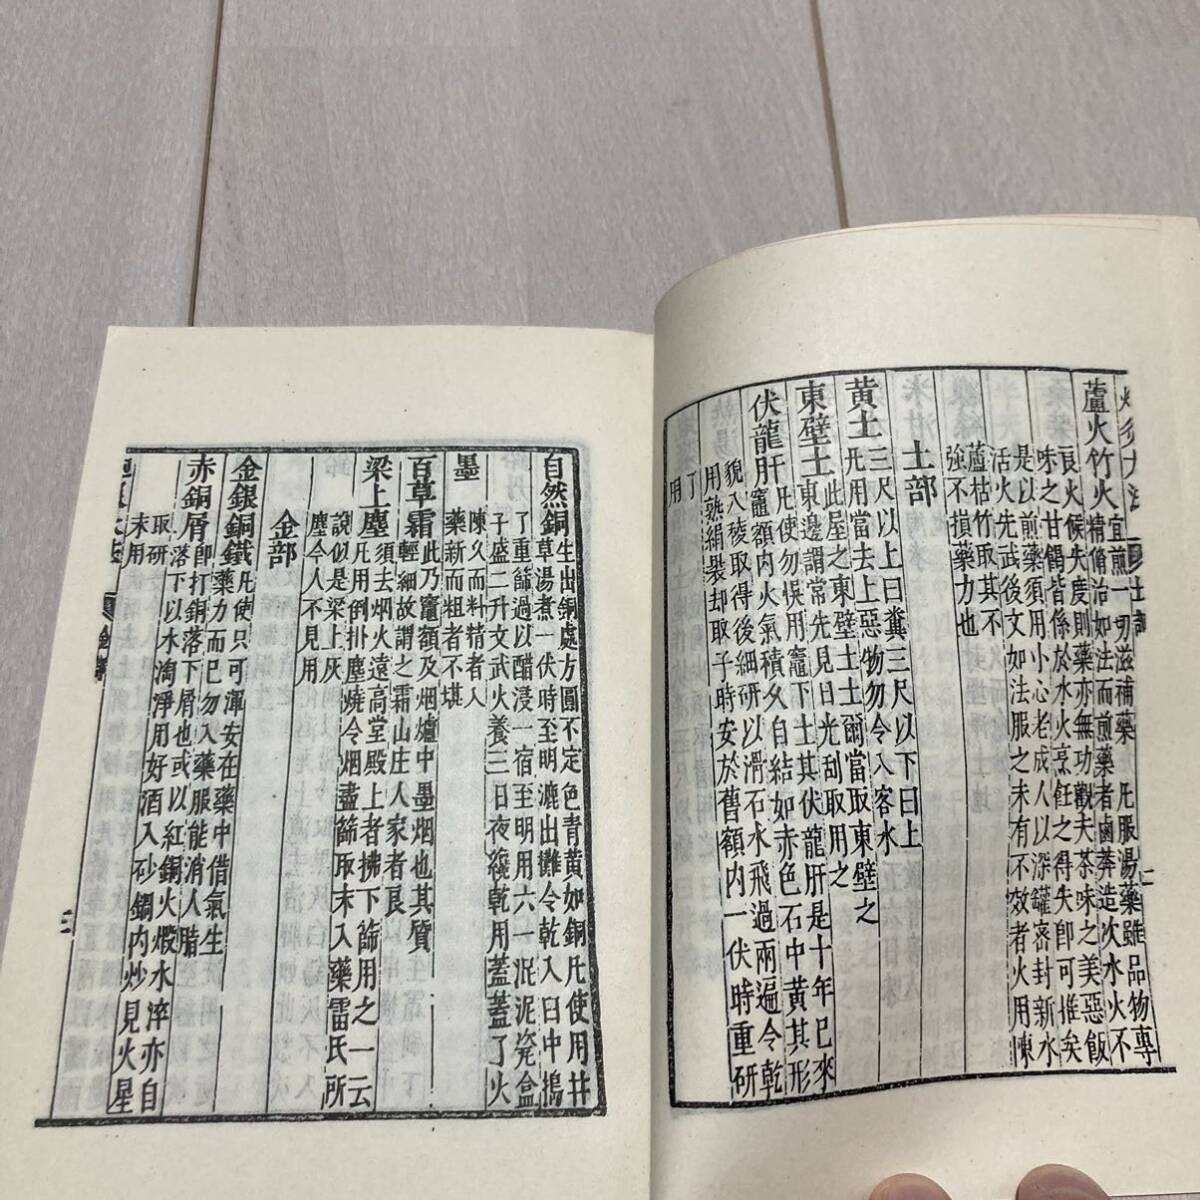 蘆火竹火宜煎一切滋補藥 凡服湯藥雖品物專
精脩治如法而煎藥者鹵莽造次水火不
良火候失度則藥亦無功觀夫茶味之美惡飯
味之甘餲皆係於水火烹飪之得失即可推矣
是以煎藥須用小心老成人以深罐密封新水
活火先武後文如法服之未有不效者火用陳
蘆枯竹取其不
強不損藥力也
土部
黄土三尺以上曰糞三尺以下曰土
凡用當去上惡物勿令入客水
東壁土此屋之東壁土爾當取東壁之
東邊謂常先見日光刮取用之
伏龍肝凡使勿悞用竈下土其伏龍肝是十年已來
竈額内火氣積久自結如赤色石中黄其形
貌入稜取得後細研以滑石水飛過兩遍令乾
用熟絹裝却取子時安於舊額内一伏時重研
了
用
自然銅生出銅處方圓不定色青黄如銅凡使用甘
草湯煮一伏時至明漉出攤令乾入臼中搗
了重篩過以醋浸一宿至明用六一泥泥瓷盒
子盛二升文武火養三日夜纔乾用蓋蓋了火
墨
陳久而料精者入
藥新而粗者不堪
百草霜此乃竈額及烟爐中墨烟也其質
輕細故謂之霜山庄人家者良
梁上塵凡用倒掛塵燒令烟盡篩取末入藥雷氏所
須去烟火遠高堂殿上者拂下篩用之一云
說似是梁上灰
塵今人不見用
金部
金銀銅鐵凡使只可渾安在藥中借氣生
藥力而已勿入藥服能消人脂
赤銅屑即打銅落下屑也或以紅銅火煅水淬亦自
落下以水淘淨用好酒入砂鍋内炒見火星
取研
末用
三